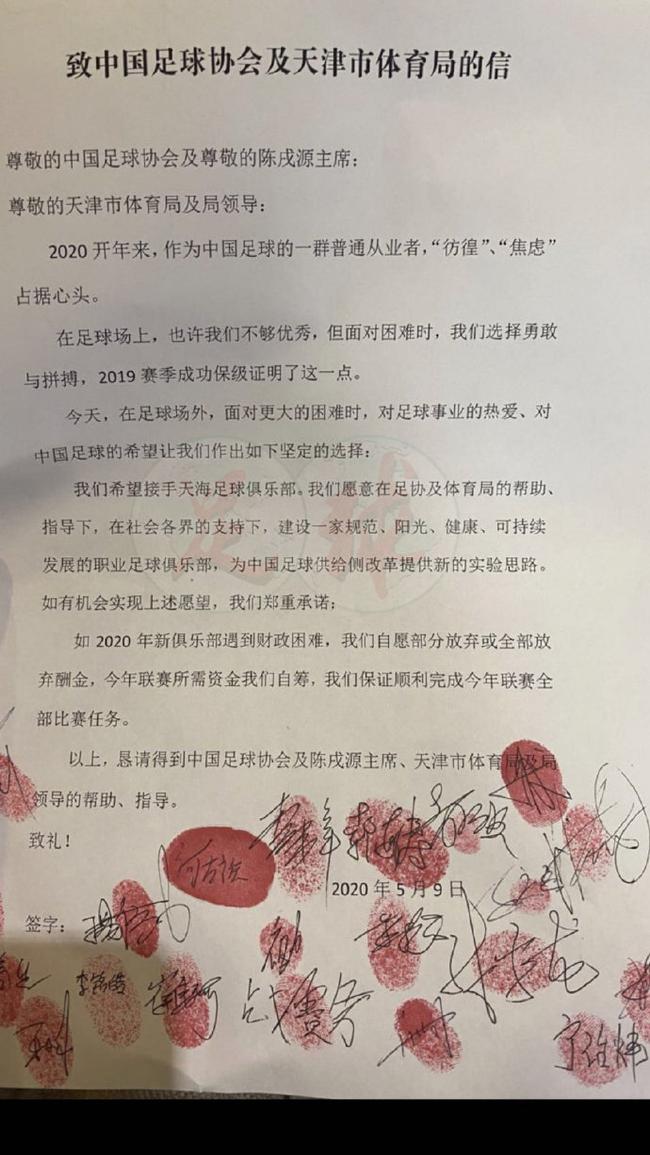 致中国足球协会及天津市体育局的信
尊敬的中国足球协会及尊敬的陈戌源主席：
尊敬的天津市体育局及局领导：
2020 开年来，作为中国足球的一群普通从业者，“彷徨”、“焦虑”
占据心头。
在足球场上，也许我们不够优秀，但面对困难时，我们选择勇敢
与拼搏，2019 赛季成功保级证明了这一点。
今天，在足球场外，面对更大的困难时，对足球事业的热爱、对
中国足球的希望让我们作出如下坚定的选择：
我们希望接手天海足球俱乐部。我们愿意在足协及体育局的帮助、
指导下，在社会各界的支持下，建设一家规范、阳光、健康、可持续
发展的职业足球俱乐部，为中国足球供给侧改革提供新的实验思路。
如有机会实现上述愿望，我们郑重承诺；
如 2020 年新俱乐部遇到财政困难，我们自愿部分放弃或全部放
弃酬金，今年联赛所需资金我们自筹，我们保证顺利完成今年联赛全
部比赛任务。
以上，恳请得到中国足球协会及陈戌源主席、天津市体育局及局
领导的帮助、指导。
致礼！
2020 年 5 月 9 日
签字：